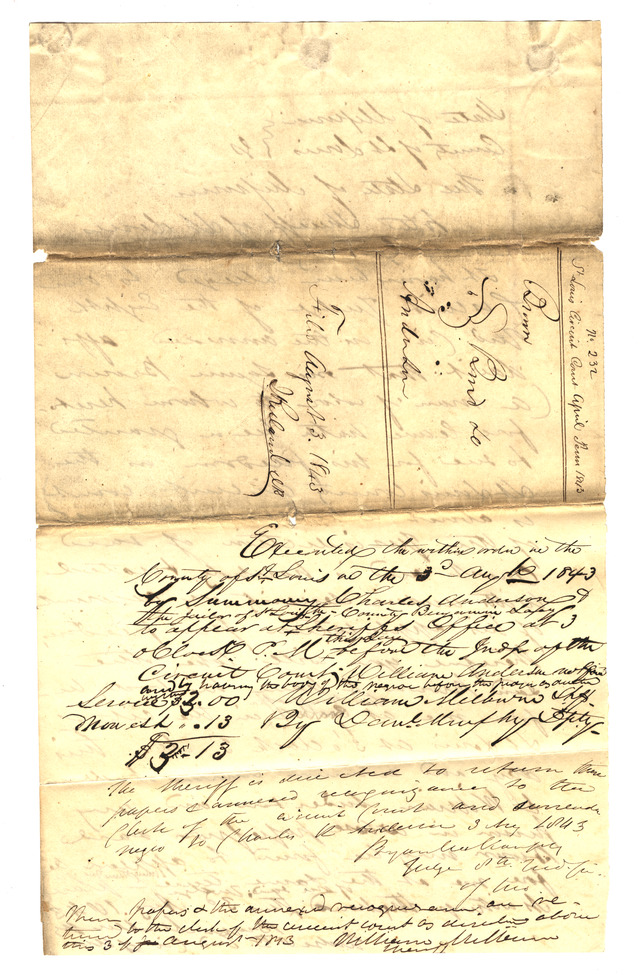 No. 232
St Louis Circuit Court April Term 1843
Brown
vs } Bond &c
Anderson
Filed August 3. 1843
Ruland clk
Executed the within order in the
County of St. Louis on the 3d Augt 1843
by Summoning Charles Anderson &
the jailor of St. Louis County
to appear at Sheriffs Office at 3
oClock P.M this day before the Judge of the
Circuit Court, William Anderson not
and by having the body of the negro before the
Service $2.00 William Milburn Shff
Non est .. 13 By Danl. Murphy Dpty
$2-13
The Sheriff is directed to return these
papers & annexed recognizance to the
Clerk of the circuit Court and surrender
negro to Charles R Anderson 3 Aug 1843
Bryan Mullanphy
Judge 8th. Jud Ci.
of Mo
These papers & the annexed recognizance are re-
turned to the clerk of the circuit court as directed above
this 3 of August 1843 William Milburn
Sheriff